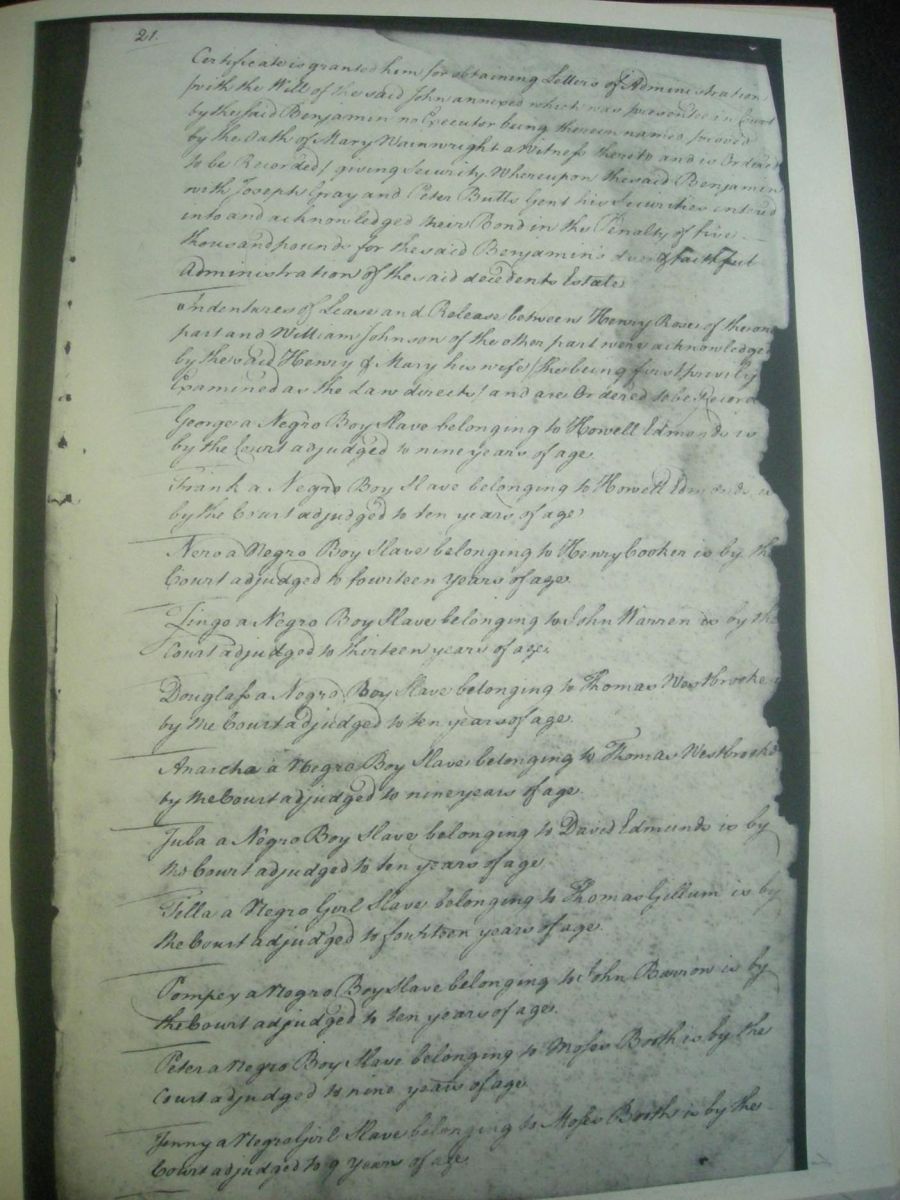 21.
Certificate is granted him for obtaining Letters of Administration
with the Will of the said John annexed which was presented in Court
by the said Benjamin no Executor being therein named proved
by the Oath of Mary Wainwright a Witness thereto and is Ordered
to be Recorded, giving Security Whereupon the said Benjamin
with Joseph Gray and Peter Butts Gent his Securities entered
into and acknowledged their Bond in the Penalty of five
thousand pounds for the said Benjamin's due & faithful
Administration of the said decedents Estate
Indentures of Lease and Release between Henry Rose of the one
part and William Johnson of the other part were acknowledged
by the said Henry & Mary his wife (she being first privily
Examined as the Law directs) and are Ordered to be Record
George a Negro Boy Slave belonging to Howell Edmonds is
by the Court adjudg'd to nine years of age
Frank a Negro Boy Slave belonging to Howell Edmonds is
by the Court adjudg'd to ten years of age
Nero a Negro Boy Slave belonging to Henry Cooker is by the
Court adjudg'd to fourteen years of age
Lingo a Negro Boy Slave belonging to John Warren is by the
Court adjudg'd to thirteen years of age
Douglass a Negro Boy Slave belonging to Thomas Westbrooke
by the Court adjudg'd to ten years of age.
Anarcha a Negro Boy Slave belonging to Thomas Westbrooke
by the Court adjudg'd to nine years of age
Juba a Negro Boy Slave belonging to David Edmunds is by
the Court adjudg'd to ten years of age
Tilla a Negro Girl Slave belonging to Thomas Gillum is by
the Court adjudg'd to fourteen years of age.
Pompey a Negro Boy Slave belonging to John Barrow is by
the Court adjudg'd to ten years of age.
Peter a Negro Boy Slave belonging to Moses Booth is by the
Court adjudg'd to nine years of age
Jenny a Negro Girl Slave belonging to Moses Booths is by the
Court adjudg'd to 9 years of age